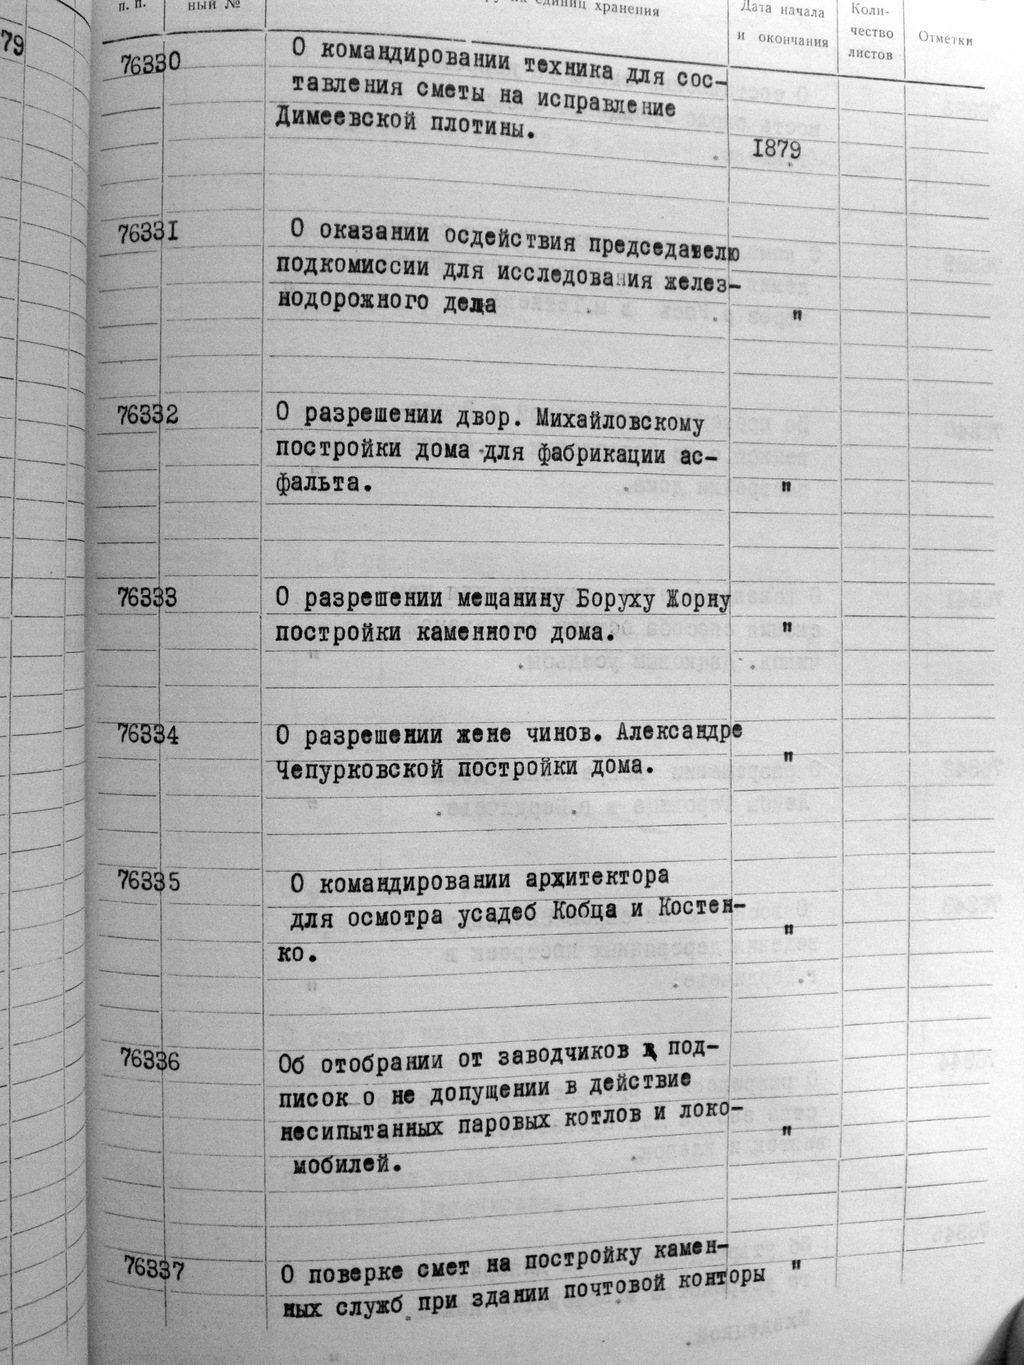 п. п.
ный №
единиц хранения
Дата начала
и окончания
Коли-
чество
листов
Отметки
79
76330
О командировании техника для сос-
тавления сметы на исправление
Димеевской плотины.
1879
76331
О оказании осдействия председателю
подкомиссии для исследования желез-
нодорожного дела "
76332
О разрешении двор. Михайловскому
постройки дома для фабрикации ас-
фальта. "
76333
О разрешении мещанину Боруху Жорну
постройки каменного дома. "
76334
О разрешении жене чинов. Александре
Чепурковской постройки дома. "
76335
О командировании архитектора
для осмотра усадеб Кобца и Костен-
ко. "
76336
Об отобрании от заводчиков под-
писок о не допущении в действие
несипытанных паровых котлов и локо-
мобилей. "
76337
О поверке смет на постройку камен-
ных служб при здании почтовой конторы "